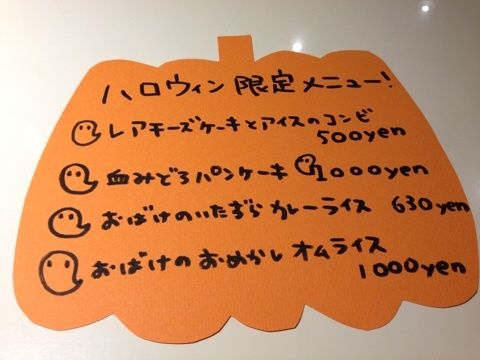 ハロウィン 限定メニュー!
レアチーズケーキとアイスのコンビ
500yen
血みどろパンケーキ 1000yen
おばけのいたずらカレーライス 630yen
おばけのおめかしオムライス
1000yen